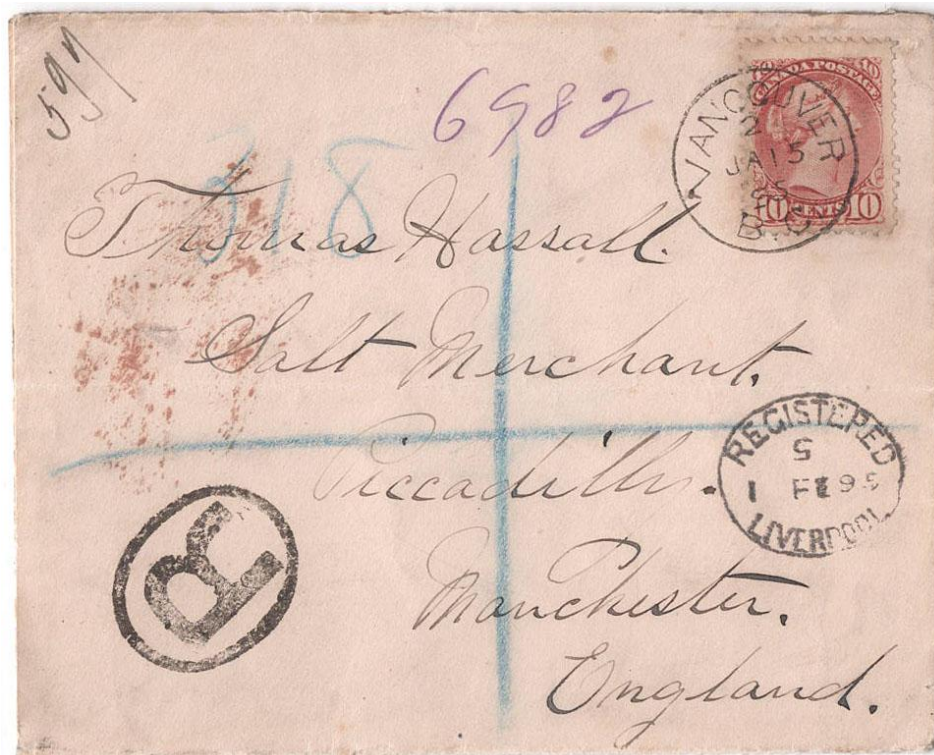 597
6982
318
CANADA POSTAGE
10 10
TEN CENTS
10 10
VANCOUVER
2
JA 15
95
B.C
Thomas Hassall.
Salt Merchant.
Piccadilly.
Manchester.
England.
REGISTERED
5
1 FE 95
LIVERPOOL
R